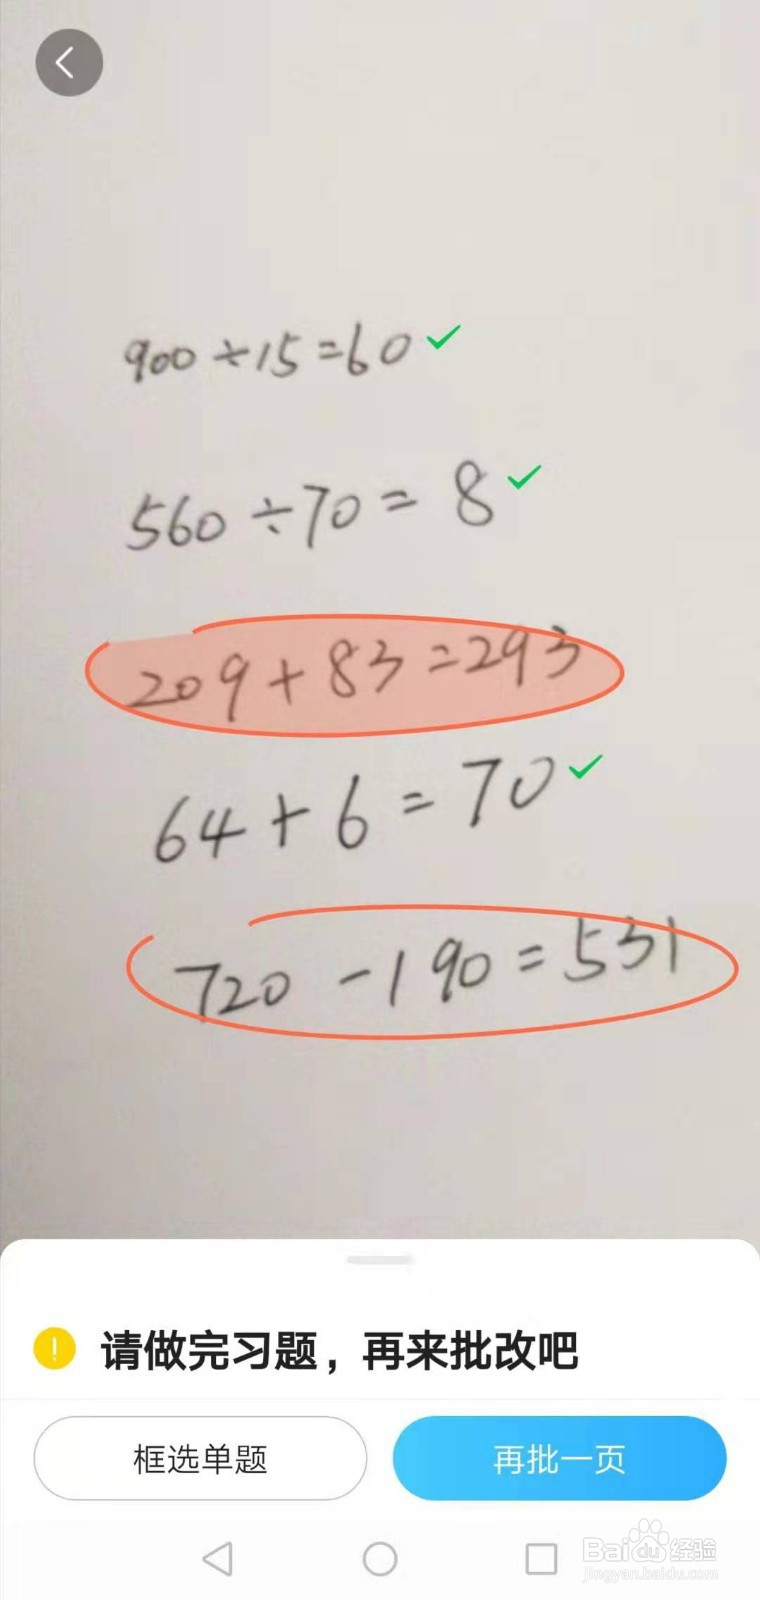 900÷15=60
560÷70=8
209+83=293
64+6=70
720-190=531
请做完习题，再来批改吧
框选单题
再批一页
Baidu经验
jingyan.baidu.com